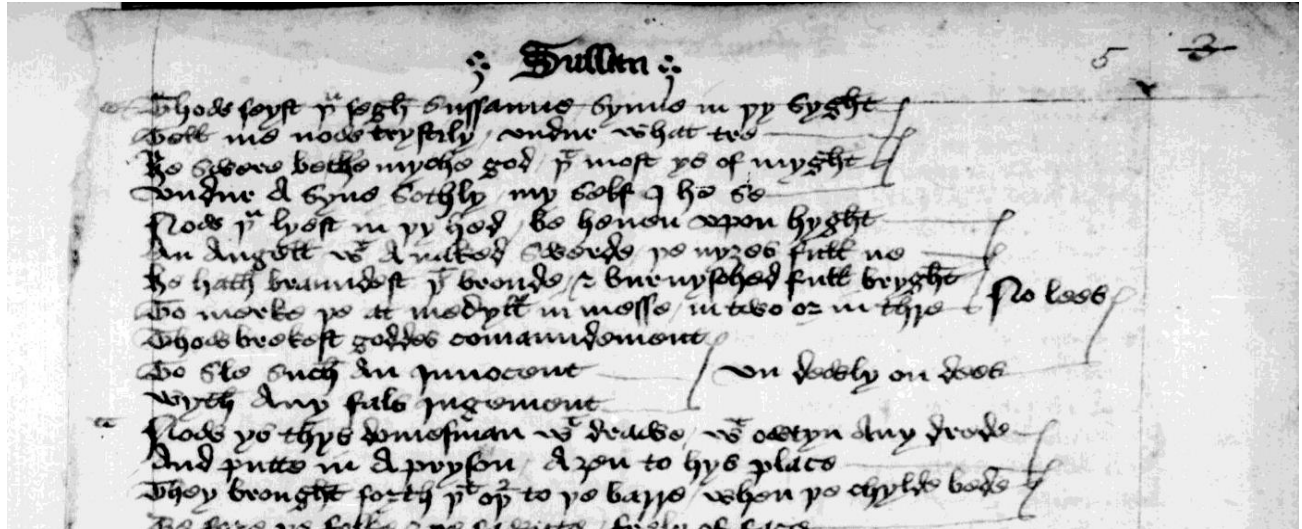 Sussan
5 3
Thow seyst þu segh Sussanne synne in þy syght
Tell me now trystyly undur what tre
He swere be the myche god þt most ys of myght
Undur A syne sothly my self I he se
Now þu lyest in þy hed be heven upon hyght
An Angell wt A naked swerde þe nyzes full ne
He hath braundest þt bronde & burnysched full bryght
To merke þe at medyll in messe in two or in thre No lees
Thow brekest goddes comaundement
To sle such An Innocent un dewly on dees
Wyth Any fals Jugement
Now ys thys domesman wt drawe wt owtyn Any drede
And putte in A pryson Azen to hys place
They brought forth þt oþr to þe barre when þe chylde bede
Be fore þe folke & þe